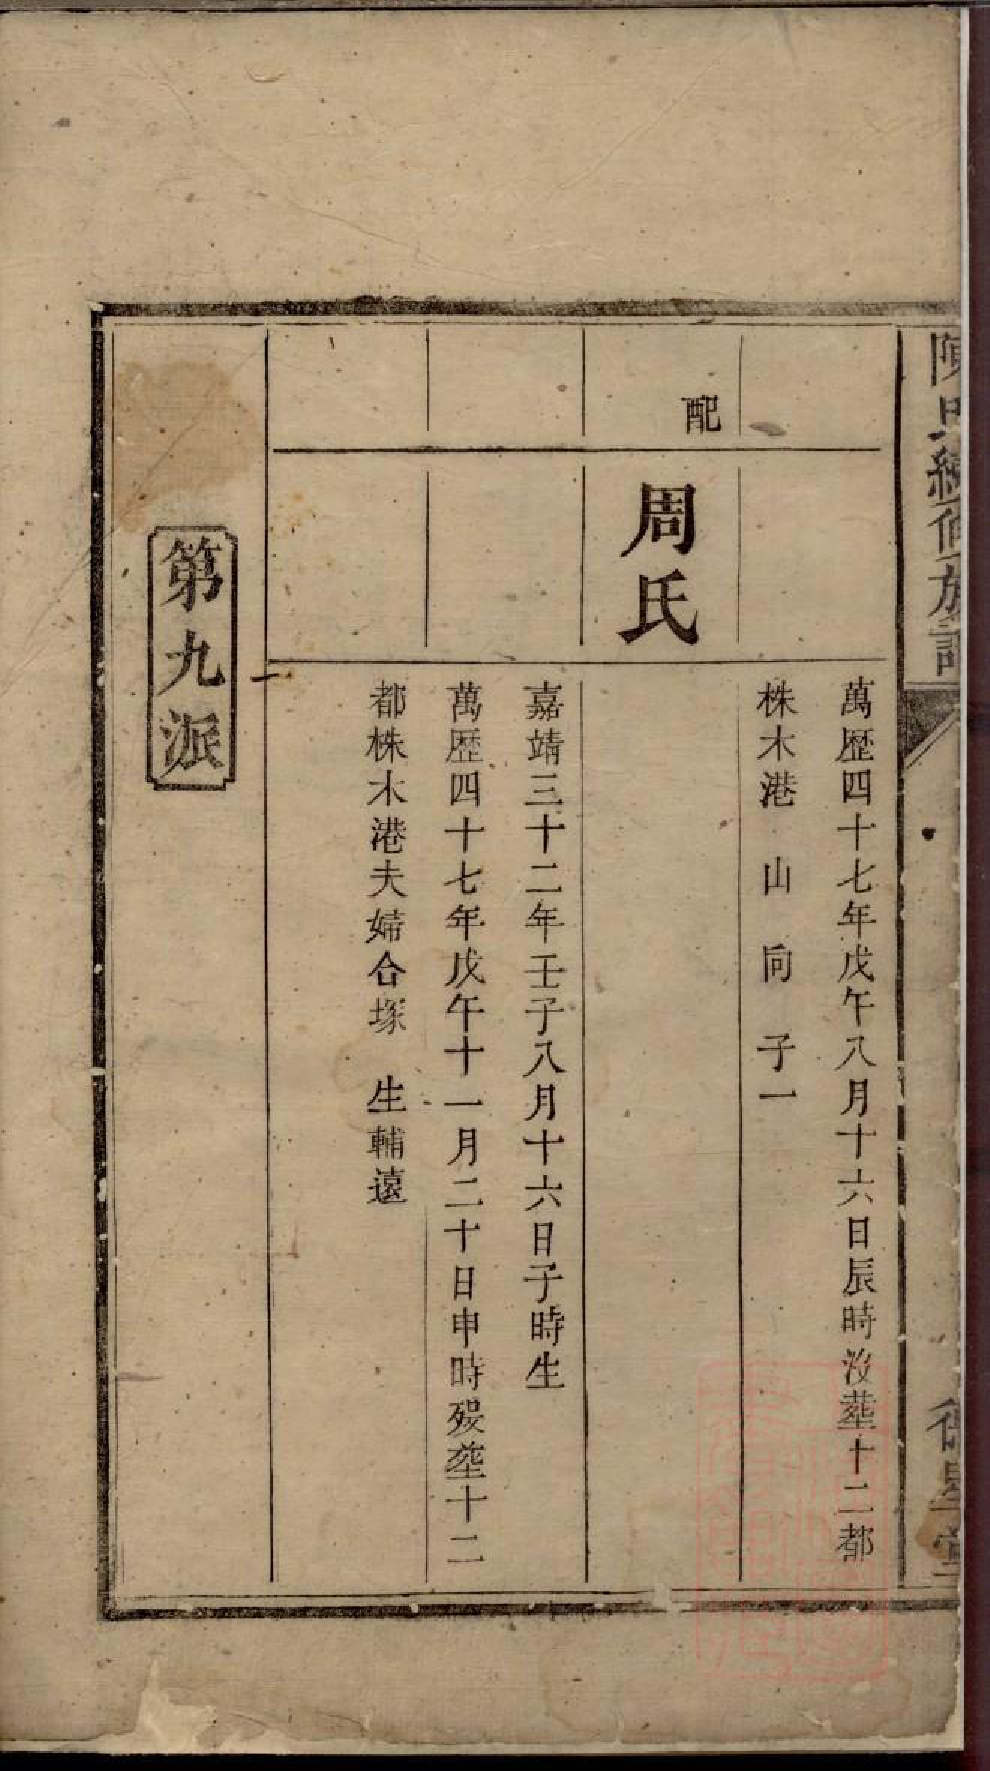 陳氏續修族譜
德星堂
萬歷四十七年戊午八月十六日辰時没塟十二都
株木港 山 向 子一
配
周氏
嘉靖三十二年壬子八月十六日子時生
萬歷四十七年戊午十一月二十日申時殁塟十二
都株木港夫婦合塚 生輔遠
第九派